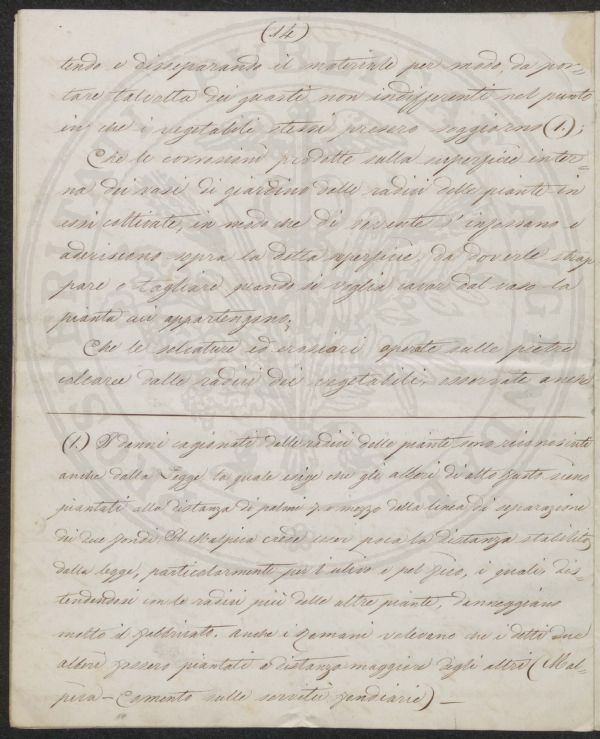 (14)
tendo e disseparando il materiale per modo, da por=
tare talvolta dei guasti non indifferenti nel punto
in che i vegetabili stessi presero soggiorno (1.);
Che le corrosioni prodotte sulla superficie inter=
na dei vasi di giardino dalle radici delle piante in
essi coltivate, in modo che di sovente s'infossano e
aderiscono sopra la detta superficie, da doverle strap
pare o tagliare quando si voglia cavar dal vaso la
pianta cui appartengono;
Che le solcature ed erosioni operate sulle pietre
calcaree dalle radici dei vegetabili, osservate anche
(1.) I danni cagionati dalle radici delle piante sono riconosciuti
anche dalla Legge la quale esige che gli alberi di alto fusto sieno
piantati alla distanza di palmi mezzo della linea di separazione
dei due fondi. Il Malpica crede esser poca la distanza stabilita
dalla legge, particolarmente per l'ulivo e pel fico, i quali, dis=
tendendosi con le radici più delle altre piante, danneggiano
molto il fabbricato. Anche i Romani volevano che i detti due
alberi fossero piantati a distanza maggiore degli altri (Mal=
pica - Comento sulle servitù fondiarie) —